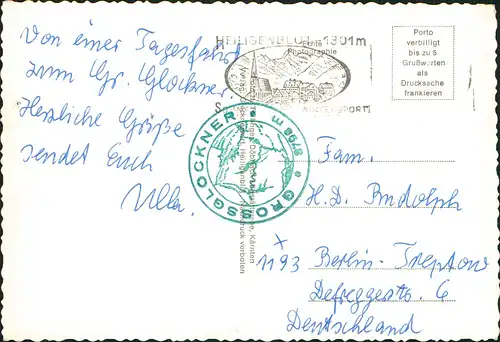 Von einer Tagesfahrt
zum Gr. Glockner
Herzliche Grüße
sendet Euch
Ulla.
HEILIGENBLUT 1301m
Echte
Photographie
WINTERSPORT
GROSSGLOCKNER 3798 m
Nachdruck verboten
Porto
verbilligt
bis zu 5
Grußworten
als
Drucksache
frankieren
Fam.
H. D. Rudolph
x
1193 Berlin-Treptow
Defreggerstr. 6
Deutschland